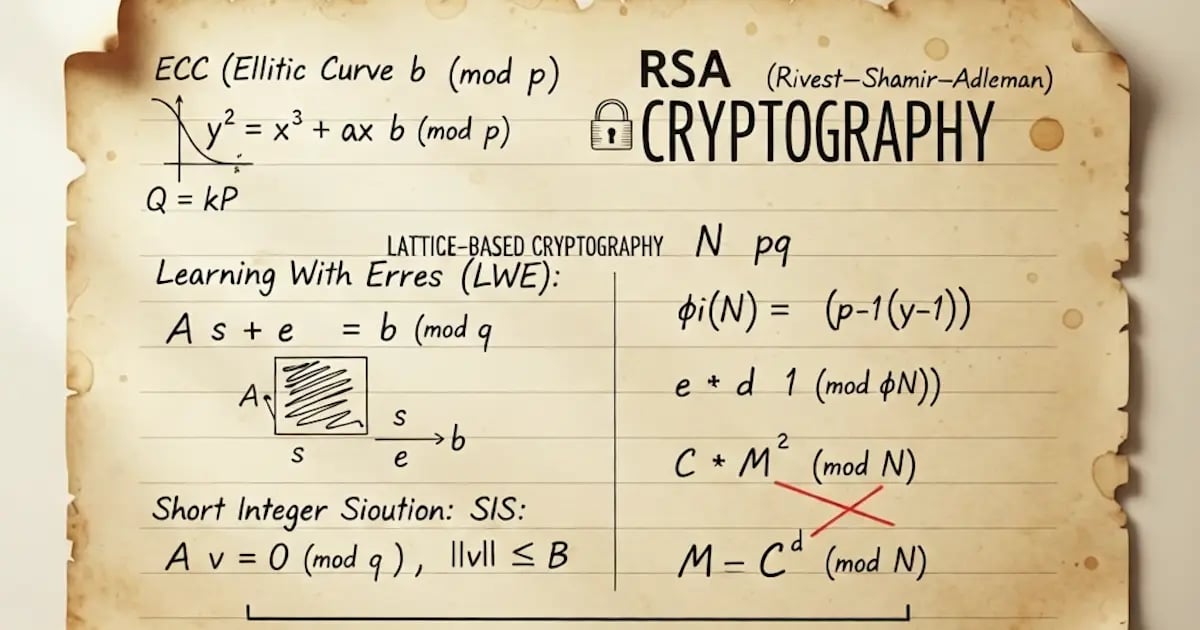 ECC (Ellitic Curve b (mod p)
y² = x³ + ax b (mod p)
Q = kP
RSA (Rivest–Shamir–Adleman)
CRYPTOGRAPHY
LATTICE-BASED CRYPTOGRAPHY
Learning With Erres (LWE):
A s + e = b (mod q
A
s
s
e
b
Short Integer Sioution: SIS:
A v = 0 (mod q), ||v|| ≤ B
N pq
ϕi(N) = (p-1(y-1))
e * d 1 (mod ϕN))
C * M² (mod N)
M – Cᵈ (mod N)